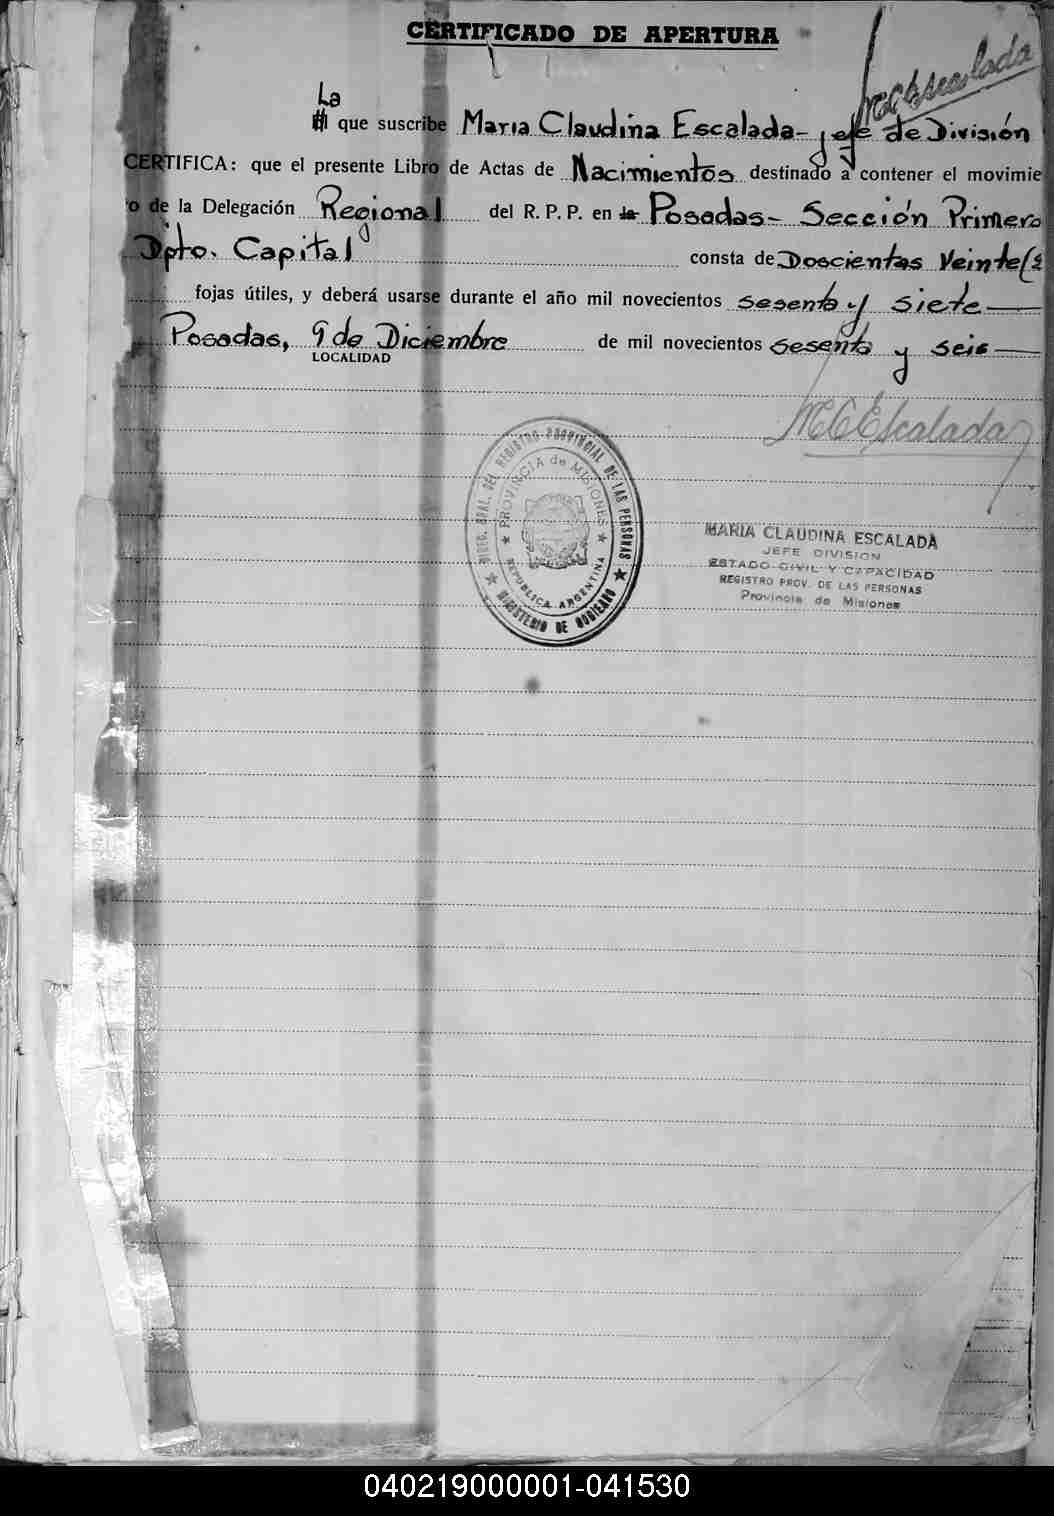 CERTIFICADO DE APERTURA
MCEscalada
La
que suscribe Maria Claudina Escalada- jefe de División
CERTIFICA: que el presente Libro de Actas de Nacimientos destinado a contener el movimie
o de la Delegación Regional del R. P. P. en la Posadas- Sección Primera
Dpto. Capital consta de Doscientas Veinte(2
fojas útiles, y deberá usarse durante el año mil novecientos sesenta y siete
Posadas, 9 de Diciembre de mil novecientos sesenta y seis
LOCALIDAD
MCEscalada
DIREC. GRAL. DEL REGISTRO PROVINCIAL DE LAS PERSONAS
PROVINCIA de MISIONES
REPUBLICA ARGENTINA
MINISTERIO DE GOBIERNO
MARIA CLAUDINA ESCALADA
JEFE DIVISION
ESTADO CIVIL Y CAPACIDAD
REGISTRO PROV. DE LAS PERSONAS
Provincia de Misiones
040219000001-041530